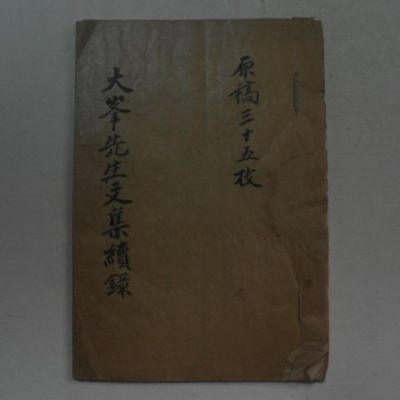 原稿三十五枚
大峯先生文集續錄